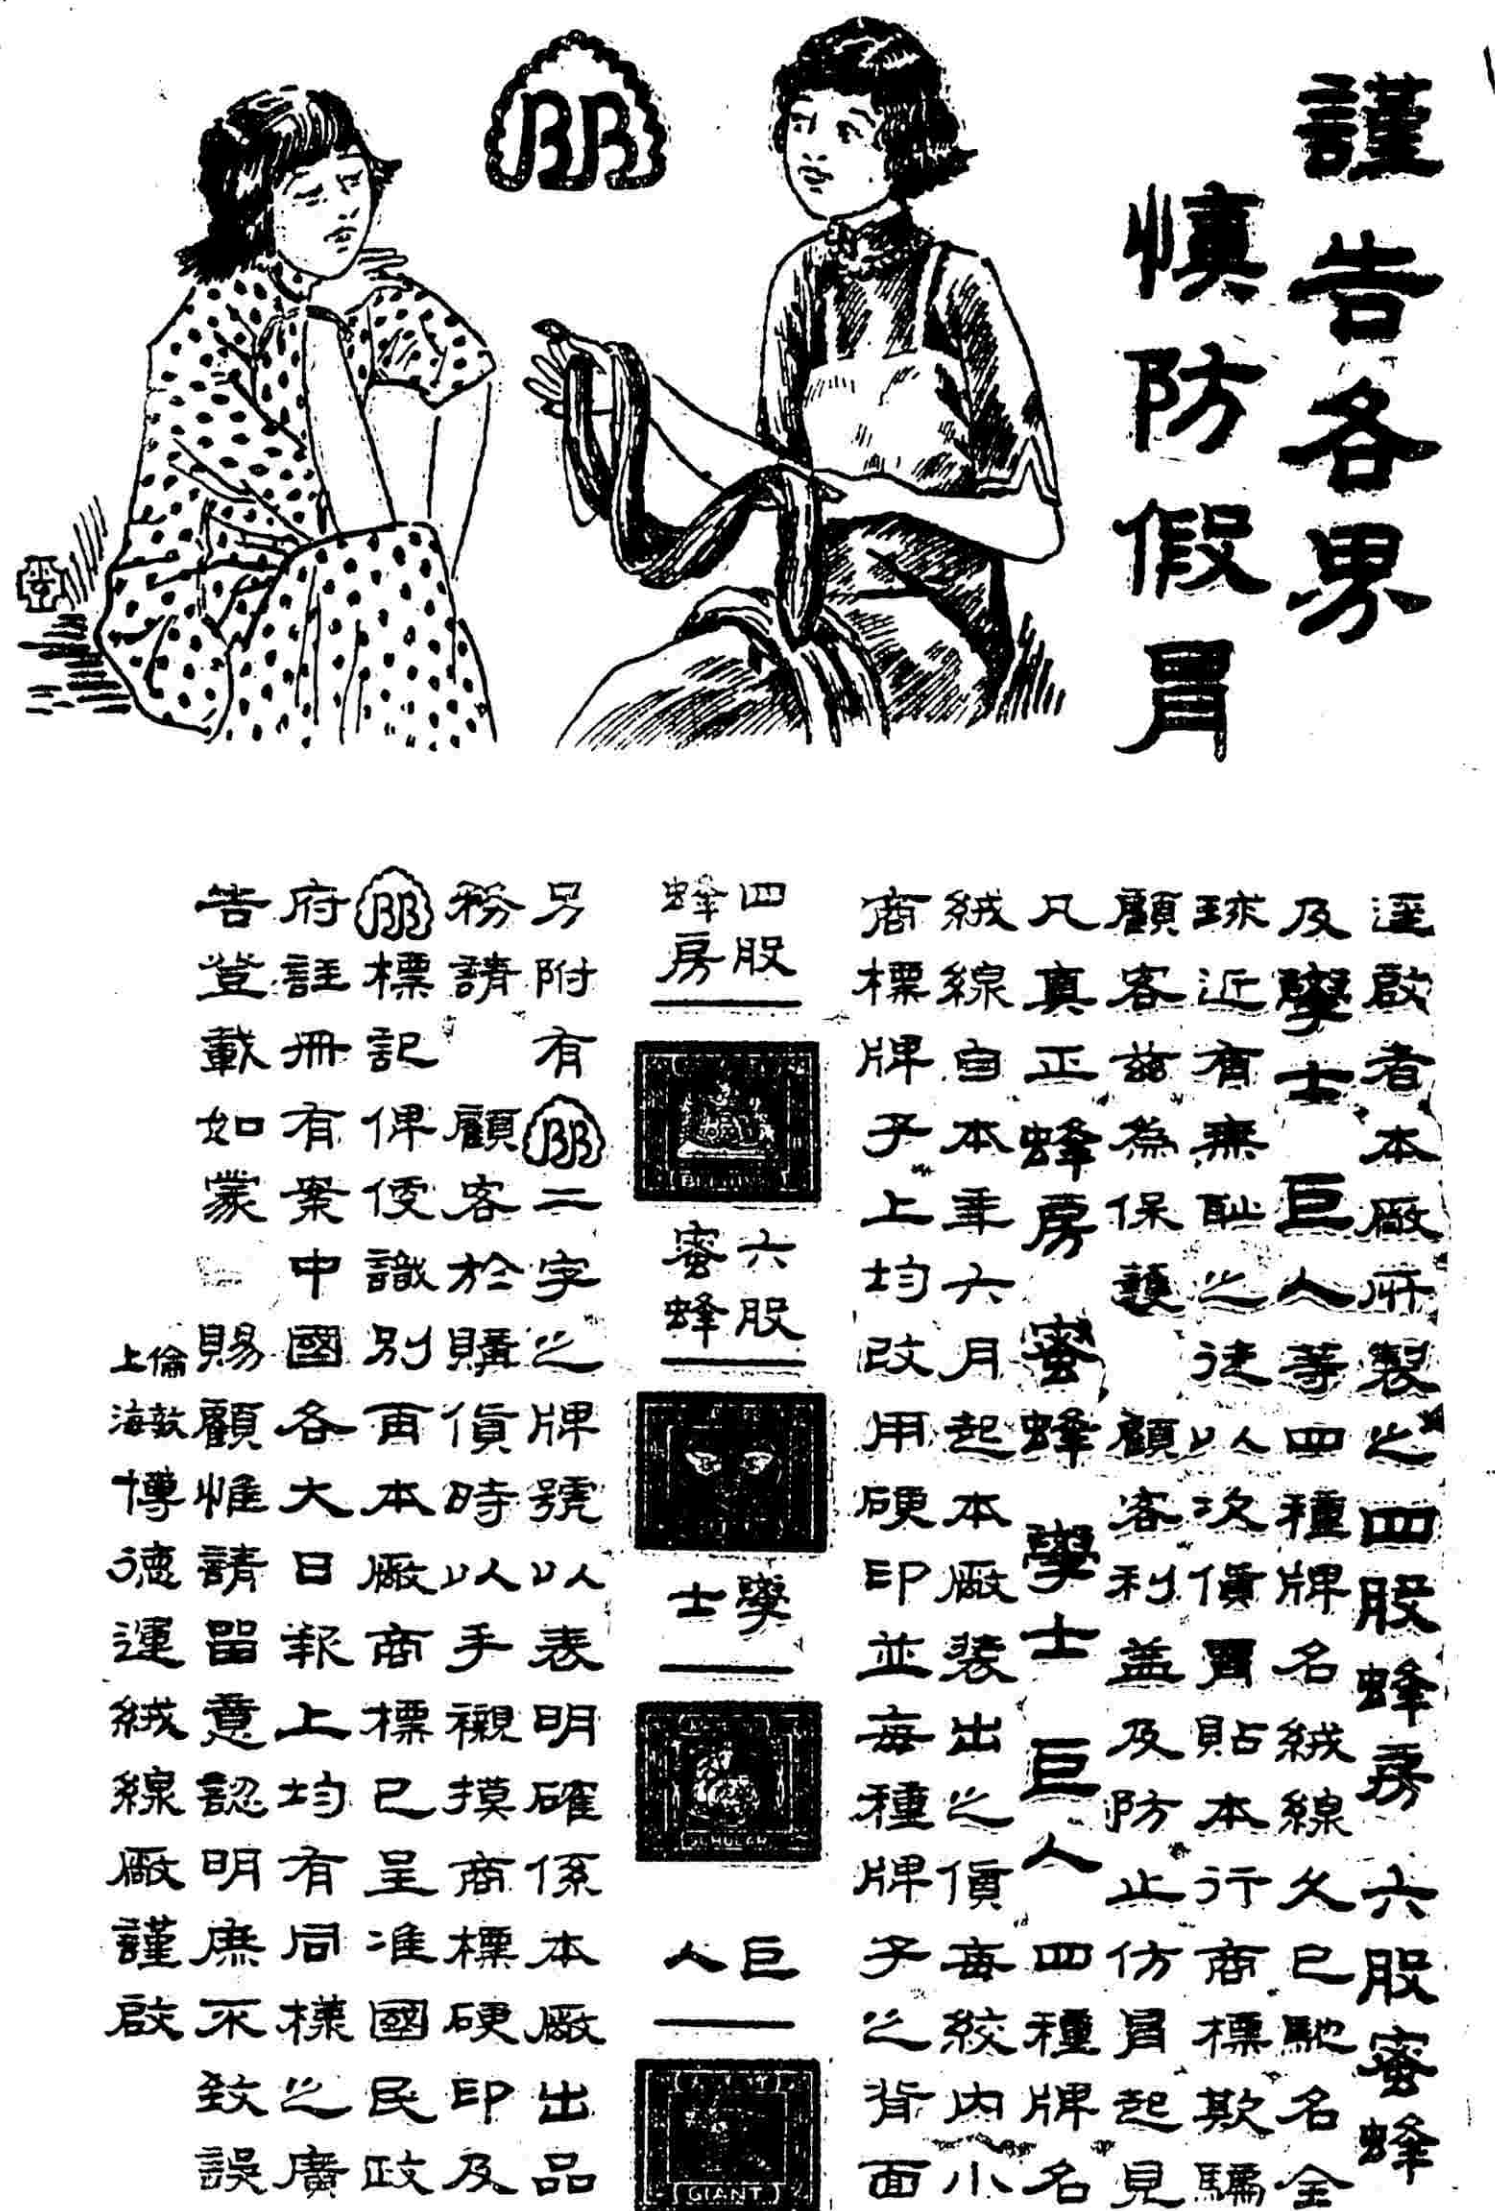 謹告各界
慎防假冒
BB
逕啟者本廠所製之四股蜂房 六股蜜蜂
及學士 巨人等四種牌名絨線久已馳名全
球近有無恥之徒以次貨冒貼本行商標欺騙
顧客茲為保護 顧客利益及防止仿冒起見
凡真正蜂房 蜜蜂 學士 巨人 四種牌名
絨線自本年六月起本廠裝出之貨每絞內小
商標牌子上均改用硬印並每種牌子之背面
四股
蜂房
六股
蜜蜂
學士
SCHOLAR
巨人
GIANT
另附有BB二字之牌號以表明確係本廠出品
務請 顧客於購貨時以手襯摸商標硬印及
BB標記俾便識別再本廠商標已呈准國民政
府註冊有案中國各大日報上均有同樣之廣
告登載如蒙 賜顧惟請留意認明庶不致誤
倫敦
上海
博德運絨線廠謹啟